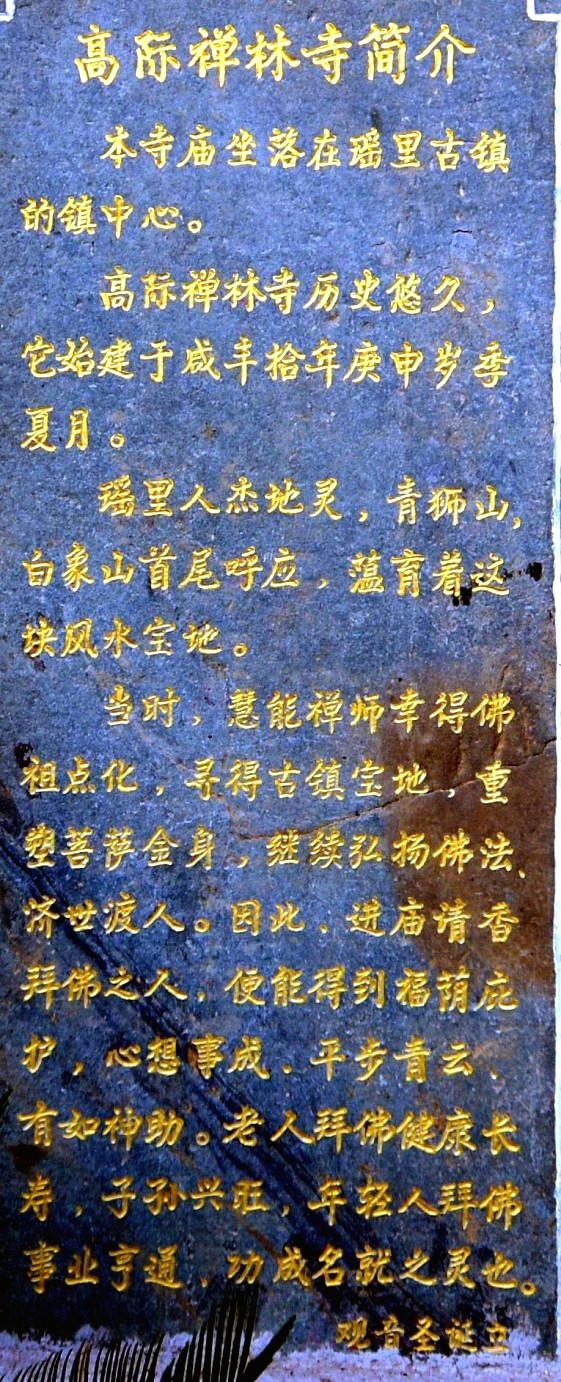 高际禅林寺简介
本寺庙坐落在瑶里古镇
的镇中心。
高际禅林寺历史悠久，
它始建于咸丰拾年庚申岁季
夏月。
瑶里人杰地灵，青狮山，
白象山首尾呼应，蕴育着这
块风水宝地。
当时，慧能禅师幸得佛
祖点化，寻得古镇宝地，重
塑菩萨金身，继续弘扬佛法、
济世渡人。因此、进庙请香
拜佛之人，便能得到福荫庇
护，心想事成、平步青云、
有如神助。老人拜佛健康长
寿，子孙兴旺，年轻人拜佛
事业亨通、功成名就之灵也。
观音圣诞立